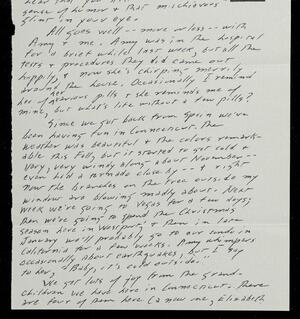 hear that you
sense of humor & that mischievous
glint in your eye.
All goes well -- more or less -- with
Amy & me. Amy was in the hospital
for a brief while last week, but all the
tests & procedures they did came out
happily, & now she's chirping merrily
around the house. Occasionally I remind
her of her various pills & she reminds me of
mine, but what's life without a few pills?
Since we got back from Spain we've
been having fun in Connecticut. The
weather was beautiful & the colors remark-
able this Fall, but it started to get cold &
very, very windy along about November --
even had a tornado close by -- & right
now the branches on the tree outside my
window are blowing madly about. Next
week we're going to Vegas for a few days;
then we're going to spend the Christmas
season here in Westport, & then in late
January we'll probably go to our condo in
California for a few weeks. Amy whimpers
occasionally about earthquakes, but I say
to her, "Baby, it's cold outside."
We get lots of joy from the grand-
children we have here in Connecticut. There
are four of them here (a new one, Elizabeth